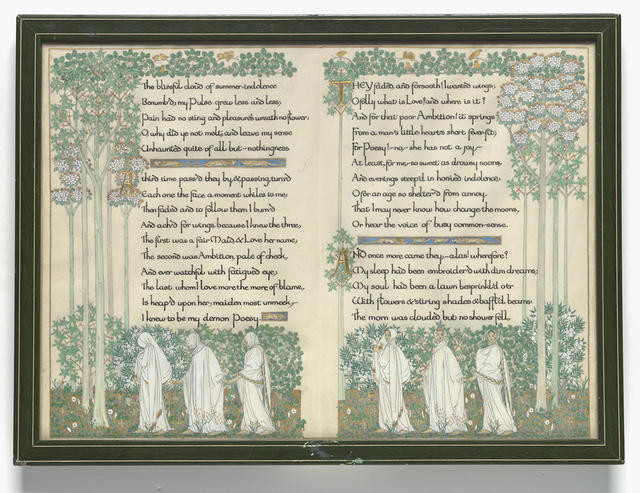 The blissful cloud of summer-indolence
Benumb'd; my Pulse grew less and less;
Pain had no sting and pleasure's wreath no flower:
O, why did ye not melt; and leave my sense
Unhaunted quite of all but—nothingness
A third time pass'd they by, & passing, turn'd
Each one the face a moment whiles to me;
Then faded and to follow them I burn'd
And ach'd for wings, because I knew the three,
The first was a fair Maid, & Love her name;
The second was Ambition, pale of cheek,
And ever watchful with fatigued eye;
The last whom I love more, the more of blame,
Is heap'd upon her, maiden most unmeek,—
I knew to be my demon Poesy.
THEY faded, and forsooth! I wanted wings;
O folly what is Love! and where is it?
And for that poor Ambition! it springs
From a man's little heart's short fever-fit;
For Poesy!—no,—she has not a joy,—
At least, for me,—so sweet as drowsy noons,
And evenings steep'd in honied indolence;
O for an age so shelter'd from annoy,
That I may never know how change the moons,
Or hear the voice of busy common-sense.
AND once more came they;—alas! wherefore?
My sleep had been embroider'd with dim dreams;
My soul had been a lawn besprinkl'd o'er
With flowers & stirring shades & baffl'd beams:
The morn was clouded but no shower fell,